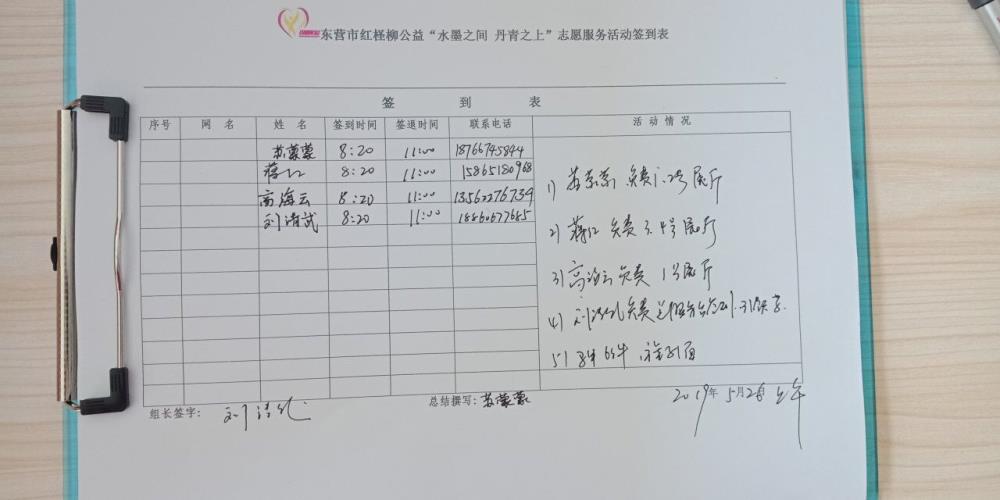 东营市红柽柳公益“水墨之间 丹青之上”志愿服务活动签到表
签 到 表
序号 网 名 姓 名 签到时间 签退时间 联系电话 活 动 情 况
苏蒙蒙 8:20 11:00 18766745844
蒋红 8:20 11:00 15865180968
高海云 8:20 11:00 13562276739
刘清 8:20 11:00 18860677685
1) 苏蒙蒙 负责1.2号展厅
2) 蒋红 负责3.4号展厅
3) 高海云负责 1号展厅
4) 刘 负责
5)
组长签字: 刘清 总结撰写: 苏蒙蒙 2019年5月26 上午